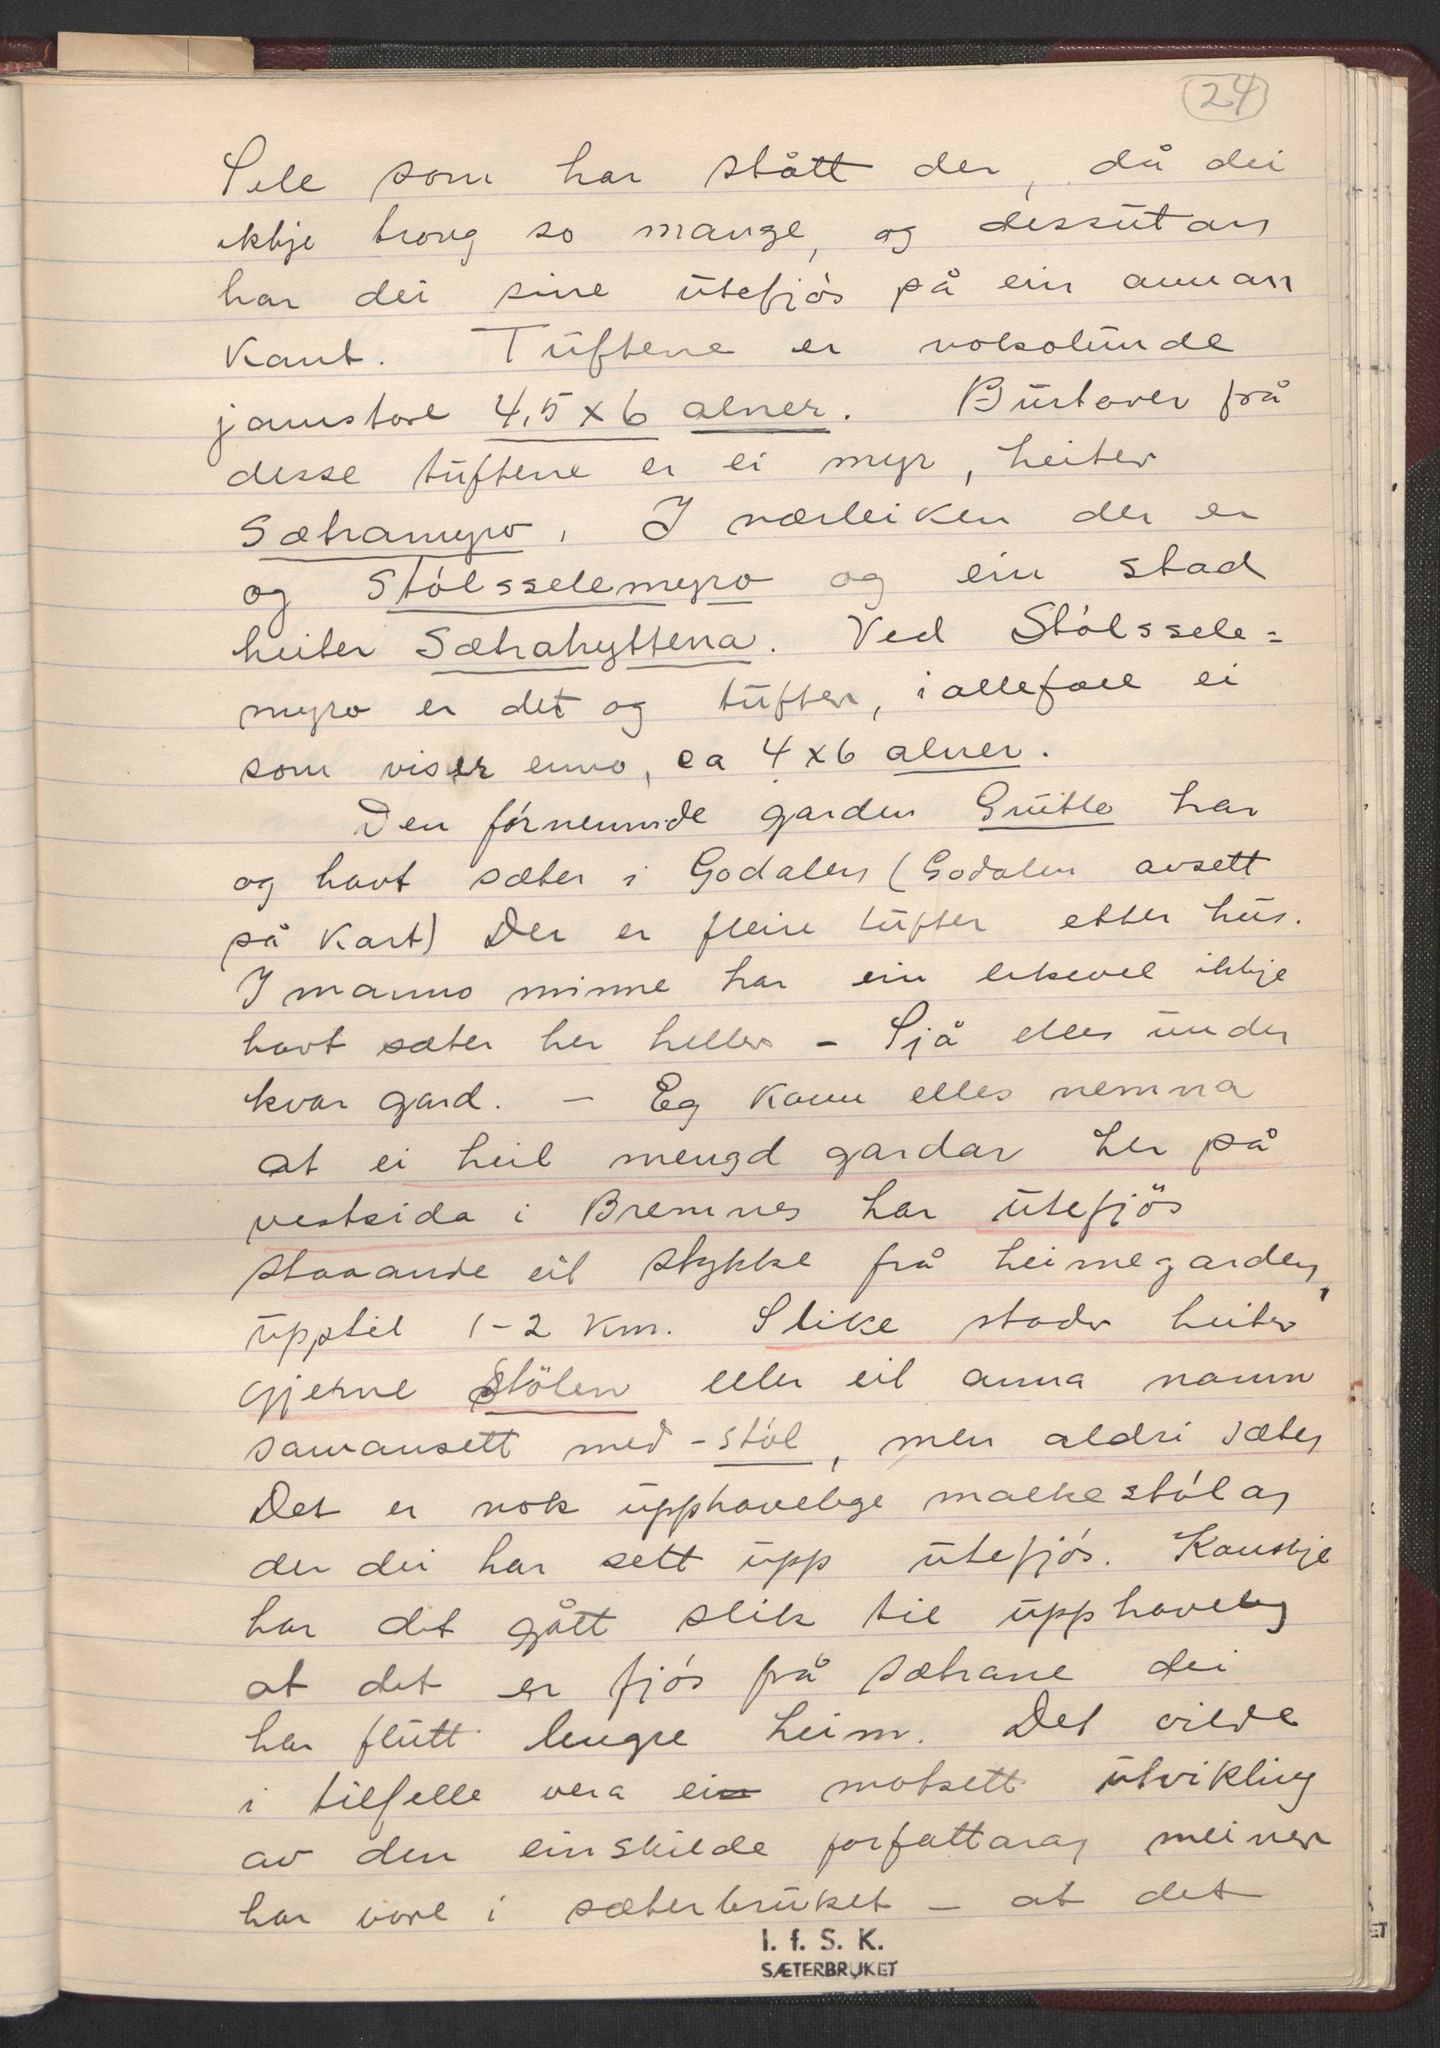 24
Sele som har stått der, då dei
ikkje trong so mange, og dessutan
har dei sine utefjós på ein annan
kant. Tuftene er vokolunde
jamstore 4,5 x 6 alner. Burtover frå
desse tuftene er ei myr, heiter
Sætramyro. I nærleiken der er
og Stólsselemyro og ein stad
heiter Sætrahyttena. Ved Stólssele=
myro er det og tufter, iallefall ei
som viser enno, ca 4 x 6 alner.
Den fórnemnde garden Gruitlo har
og havt sæter i Godalen (Godalen avsett
på kart) Der er fleire tufter etter hus.
I manns minne har ein likevel ikkje
havt sæter her heller – Sjå elles under
kvar gard. – Eg kann elles nemna
at ei heil mengd gardar her på
vestsida i Bremnes har utefjös
staaande eit stykke frå heimegarden,
upptil 1-2 km. Slike stader heiter
gjerne Stölen eller eit anna namn
samansett med -stól, men aldri sæter
Det er nok upphavelege mælkestólar
der dei har sett upp utefjós. Kanskje
har det gått slik til upphaveleg
at det er fjós frå sætrane dei
har flutt lengre heim. Det vilde
i tilfelle vera ein motsett utvikling
av den einskilde forfattarar meiner
har vore i sæterbruket – at det
I. f. S. K.
SÆTERBRUKET